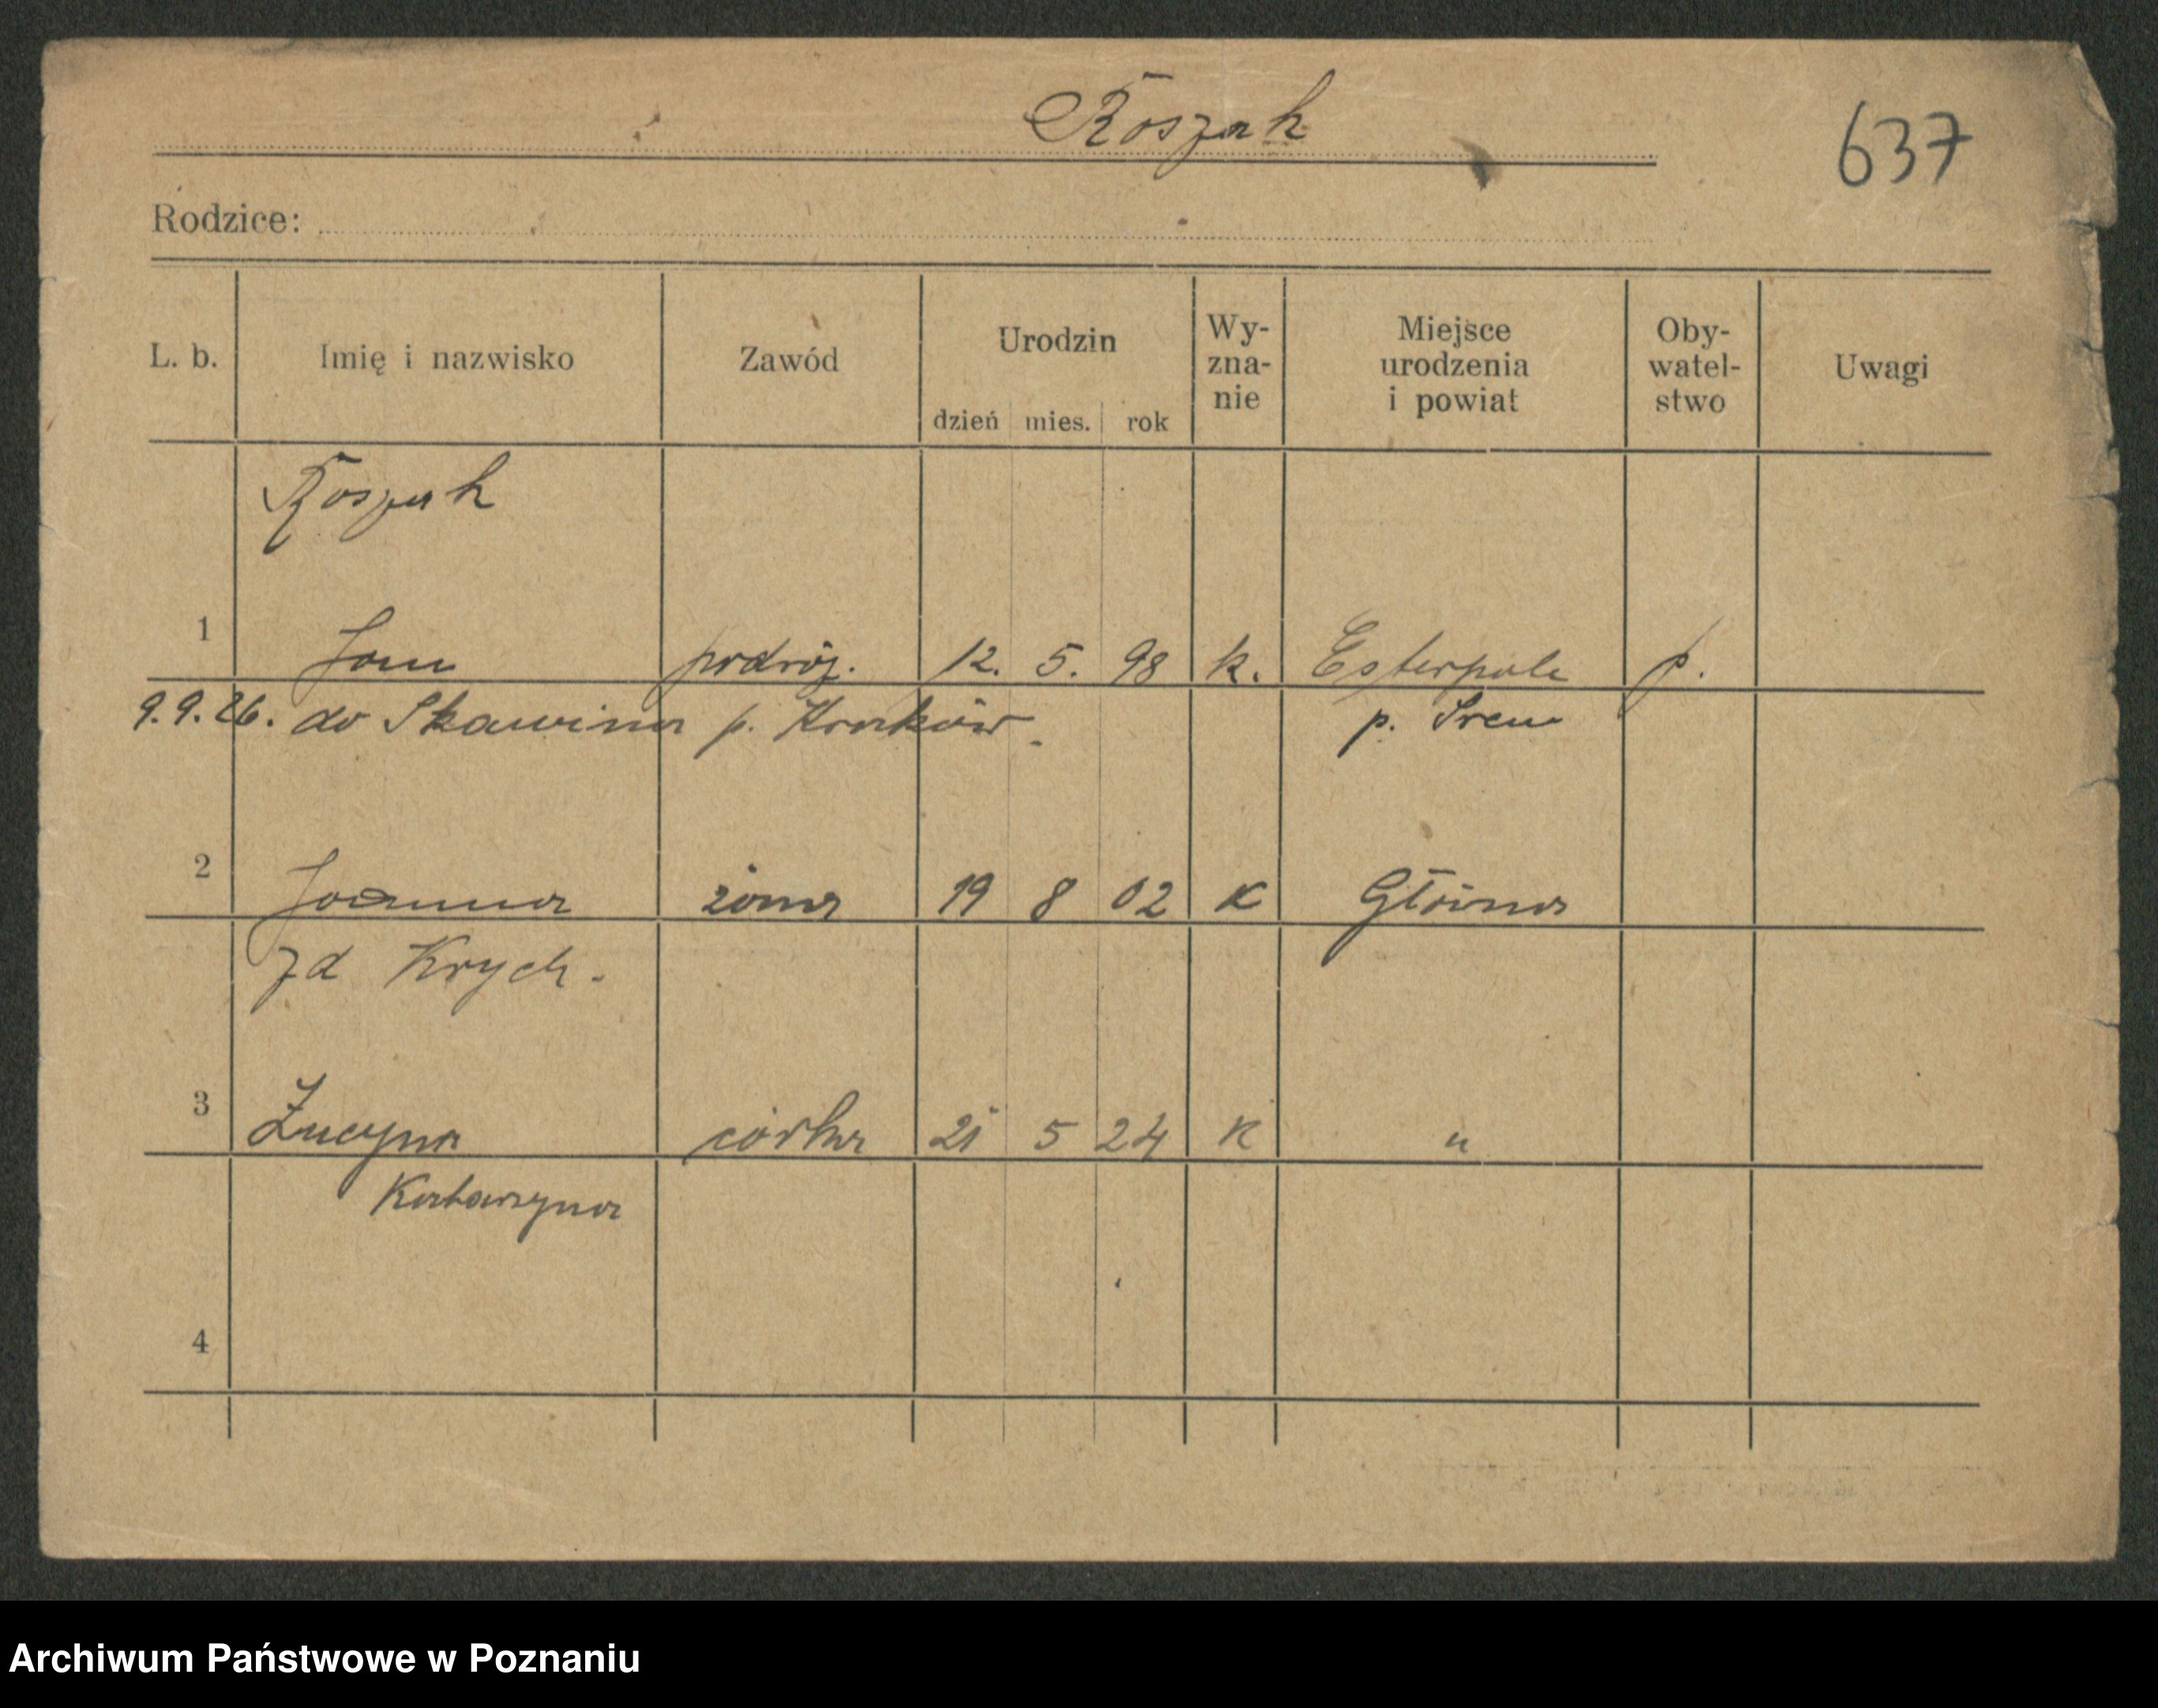 Koszak
637
Rodzice:
L. b. Imię i nazwisko Zawód Urodzin Wy-zna-nie Miejsce urodzenia i powiat Oby-watel-stwo Uwagi
dzień mies. rok
Koszak
1 Jan podróż. 12. 5. 98 k. Esterpole p.
9.9.26. do Skawina p. Kraków. p. Śrem
2 Joanna żona 19 8 02 K Główna
zd Krych.
3 Łucyna córka 21 5 24 K "
Katarzyna
4
Archiwum Państwowe w Poznaniu